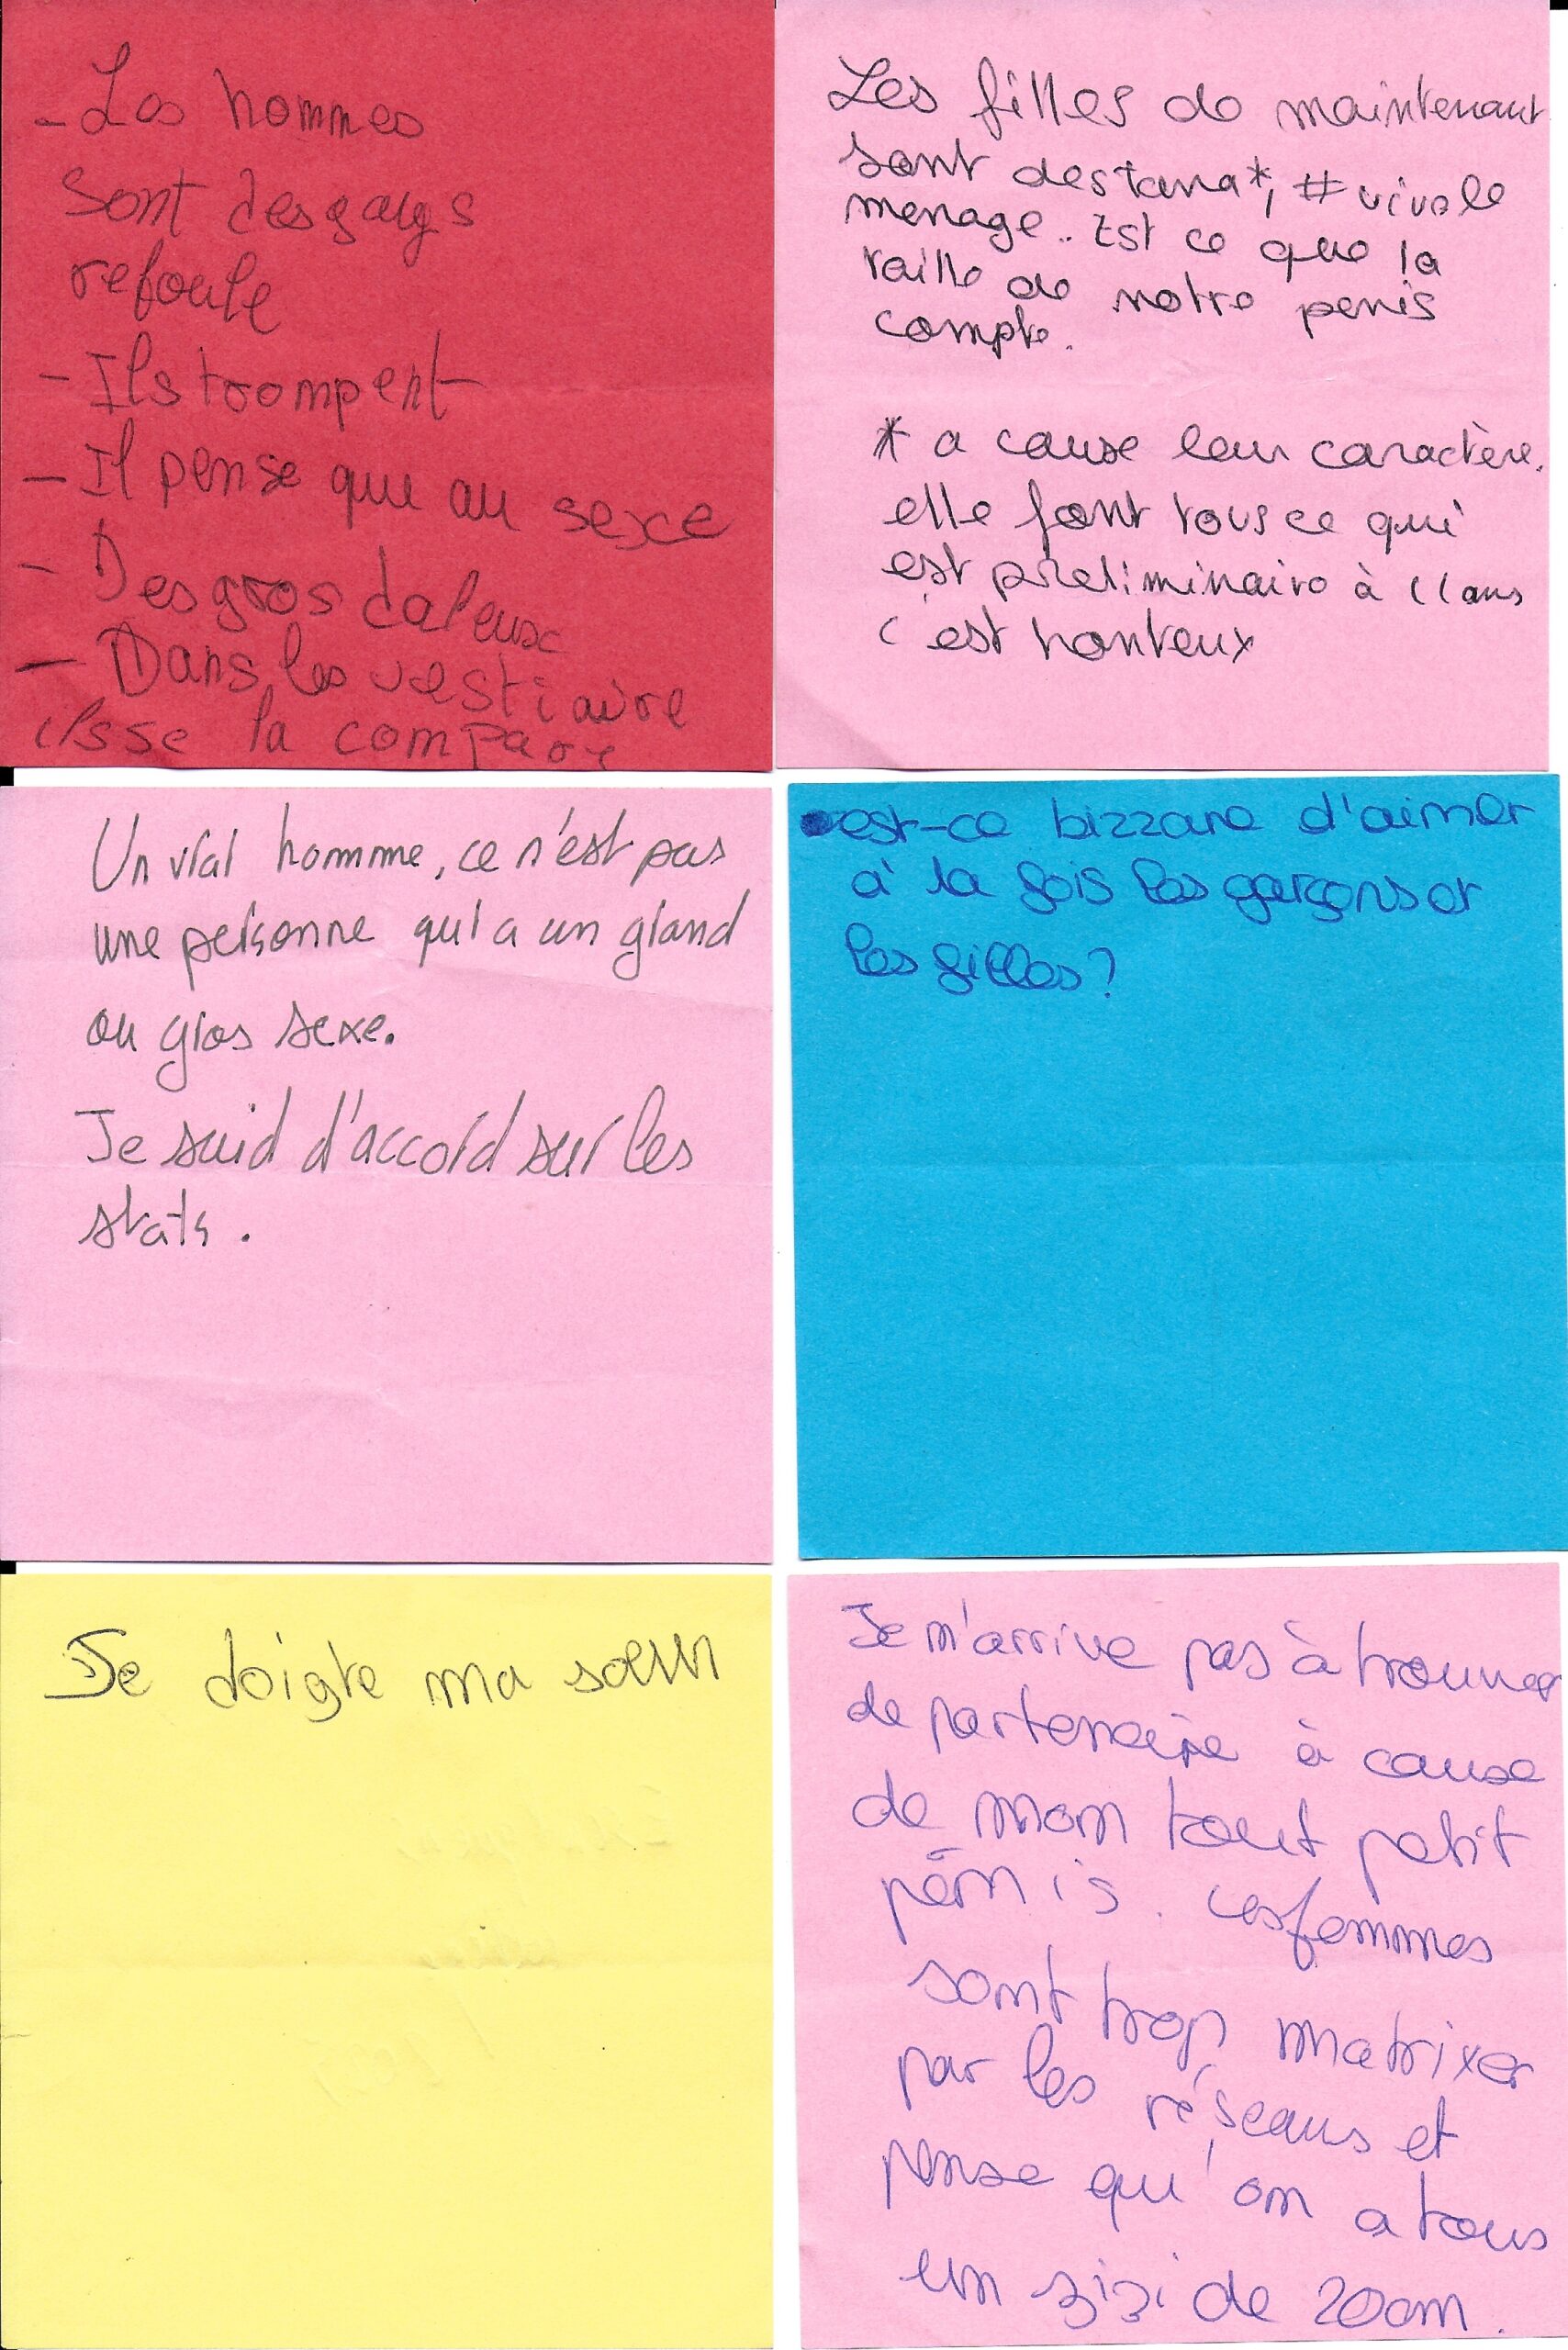 - Les hommes
sont des gays
refoule
- Ils trompent
- Il pense que au sexe
- Des gros daleux
- Dans les vestiaire
ils se la compare
Les filles de maintenant
sont des tana*, # vive le
menage.. Est ce que la
taille de notre penis
compte.
* a cause leur caractère.
elle font tous ce qui
est preliminaire à 11 ans
c'est honteux
Un vrai homme, ce n'est pas
une personne qui a un grand
ou gros sexe.
Je suid d'accord sur les
stats.
est-ce bizzare d'aimer
à la fois les garçons et
les filles?
Je doigte ma soeur
Je n'arrive pas à trouver
de partenaire à cause
de mon tout petit
pénis. Les femmes
sont trop matrixer
par les réseaus et
pense qu'on a tous
un zizi de 20cm.